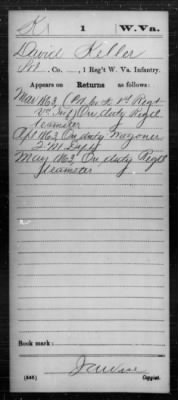 K | 1 | W. Va.
David Keller
Co. , 1 Reg't W. Va. Infantry.
Appears on Returns as follows:
Mar 1863 1st Regt
Va Inf) On duty Regtl
teamster
Apl 1863 On duty Wagoner
Q M Dept
May 1863 On duty Regtl
teamster
Book mark:
(546) Copyist.